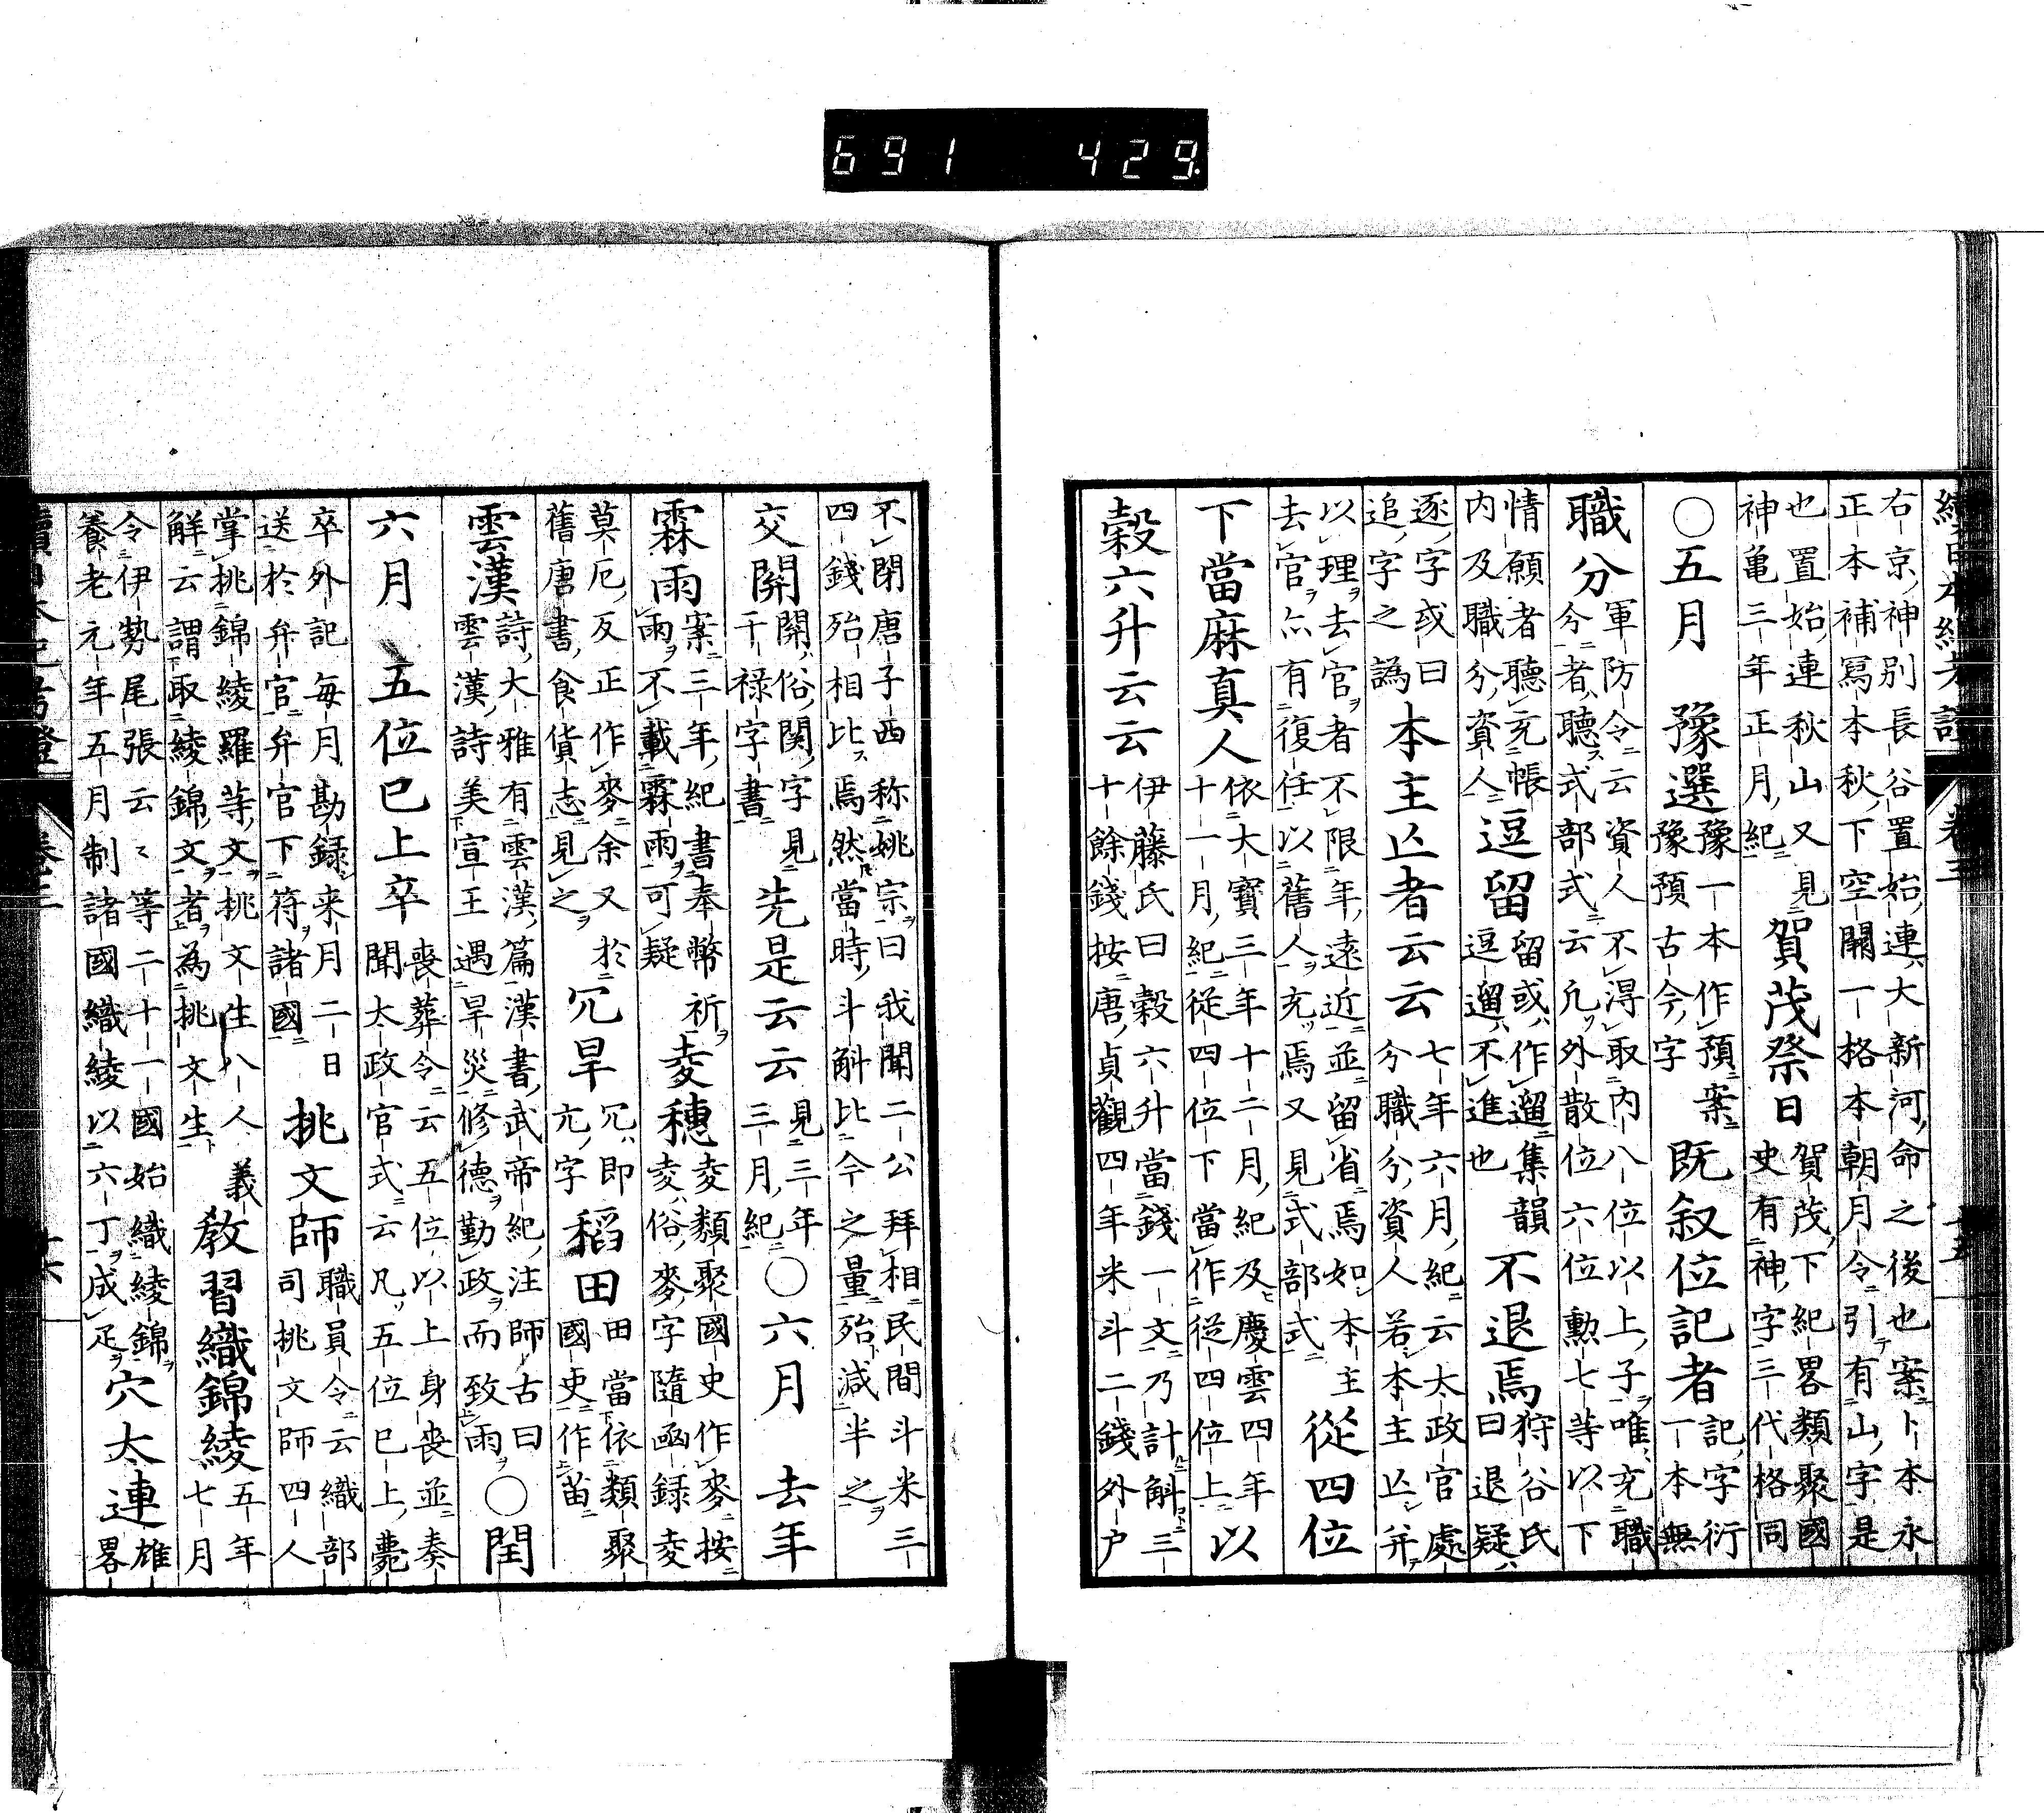 691 429
右京神別長谷置始連大新河命之後也案卜本永
正本補寫本秋下空闕一格本朝月令引有山字是
也置始連秋山又見
神龜三年正月紀
賀茂祭日
賀茂下紀畧類聚國
史有神字三代格同
○五月
豫選
豫一本作預案
豫預古今字
既叙位記者
記字衍
一本無
職分
軍防令云資人不得取内八位以上子唯充職
分者聽式部式云凡外散位六位勲七等以下
情願者聽充帳
内及職分資人
逗留
留或作遛集韻
逗遛不進也
不退焉
狩谷氏
曰退疑
逐字或曰
追字之譌
本主亾者云云
七年六月紀云太政官處
分職分資人若本主亾并
以理去官者不限年遠近並留省焉如本主
去官亦有復任以舊人充焉又見式部式
從四位
下當麻真人
依大寳三年十二月紀及慶雲四年
十一月紀從四位下當作從四位上
以
穀六升云云
伊藤氏曰穀六升當錢一文乃計斛三
十餘錢按唐貞觀四年米斗二錢外戸
不閉唐子西称姚宗曰我聞二公拜相民間斗米三
四錢殆相比焉然當時斗斛比今之量殆減半之
交關
關俗関字見
干禄字書
先是云云
見三年
三月紀
○六月
去年
霖雨
案三年紀書奉幣祈
雨不載霖雨可疑
麦穗
麦類聚國史作麥按
麦俗麥字隨函録麦
莫厄反正作麥余又於
舊唐書食貨志見之
冗旱
冗即
亢字
稻田
田當依類聚
國史作苗
雲漢
詩大雅有雲漢篇漢書武帝紀注師古曰
雲漢詩美宣王遇旱災修德勤政而致雨
○閏
六月
五位巳上卒
喪葬令云五位以上身喪並奏
聞太政官式云凡五位巳上薨
卒外記毎月勘録来月二日
送於弁官弁官下符諸國
挑文師
職員令云織部
司挑文師四人
掌挑錦綾羅等文挑文生八人義
解云謂取綾錦文者為挑文生
教習織錦綾
五年
七月
令伊勢尾張云々等二十一國始織綾錦
養老元年五月制諸國織綾以六丁成疋
穴太連
雄
畧